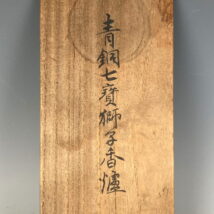 青銅七寳獅子香爐